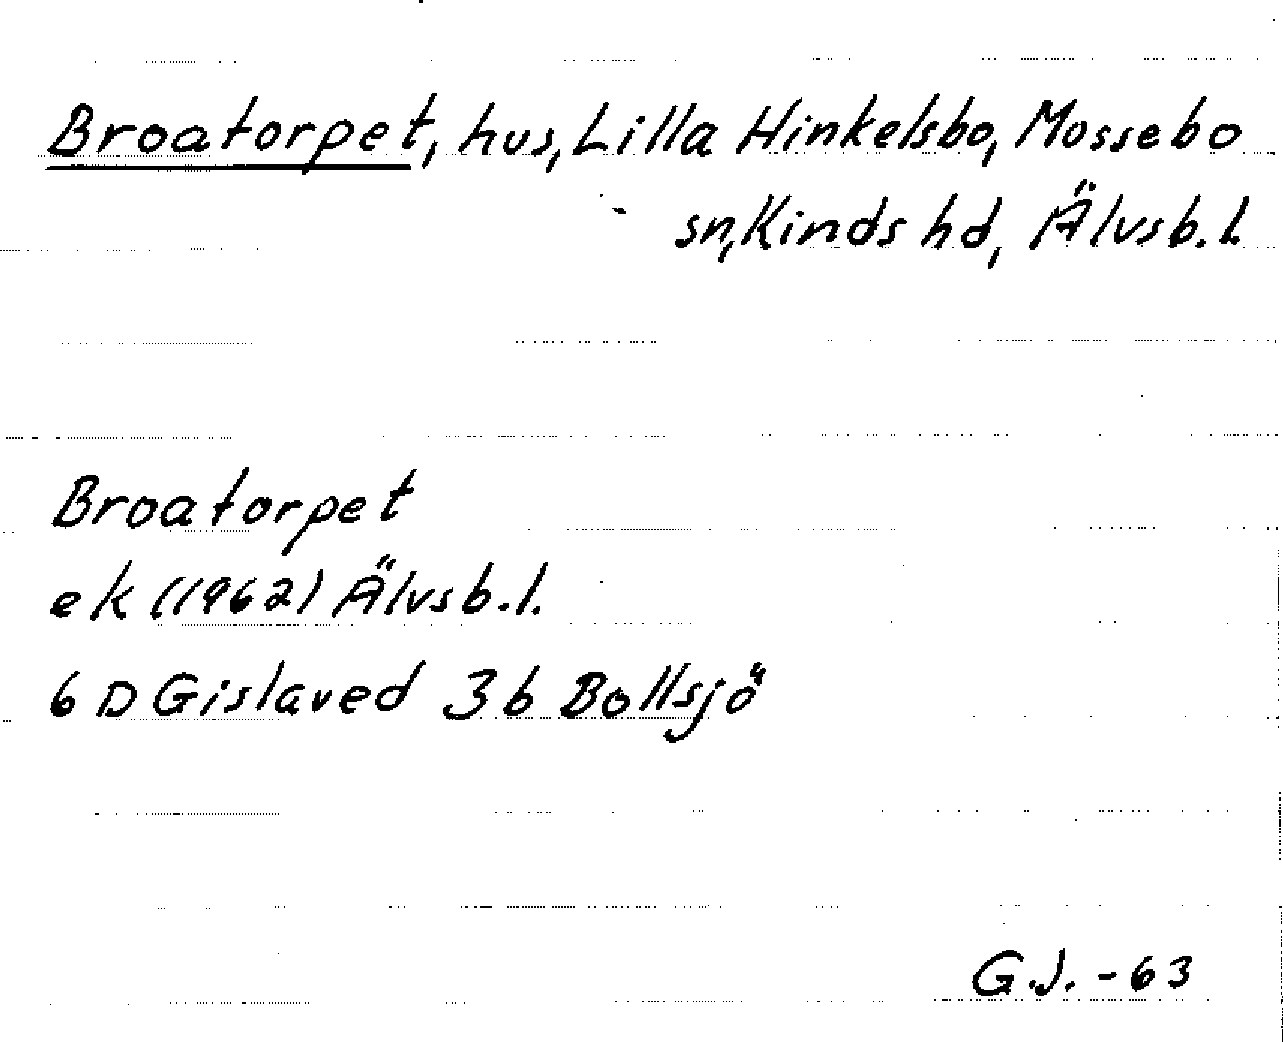 Broatorpet, hus, Lilla Hinkelsbo, Mossebo
sn, Kinds hd, Älvsb. l.
Broatorpet
ek (1962) Älvsb. l.
6 D Gislaved 3 b Bollsjö
G.J. -63